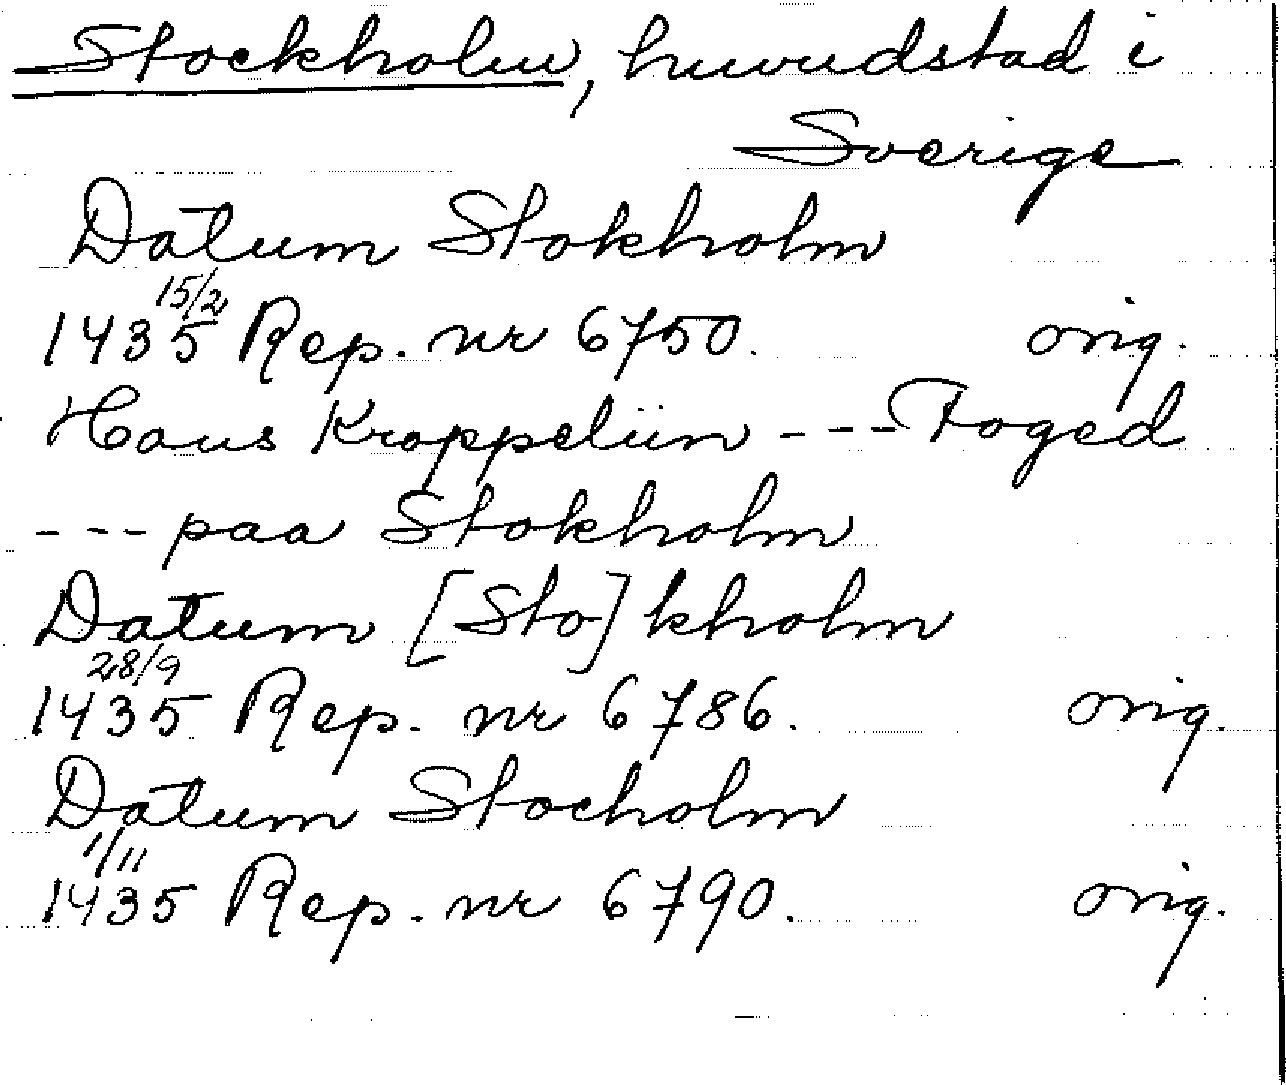 Stockholm, huvudstad i
Sverige
Datum Stokholm
15/2
1435 Rep. nr 6750. orig.
Hans Kroppelün --- Foged
--- paa Stokholm
Datum [Sto]kholm
28/9
1435 Rep. nr 6786. orig.
Datum Stocholm
1/11
1435 Rep. nr 6790. orig.